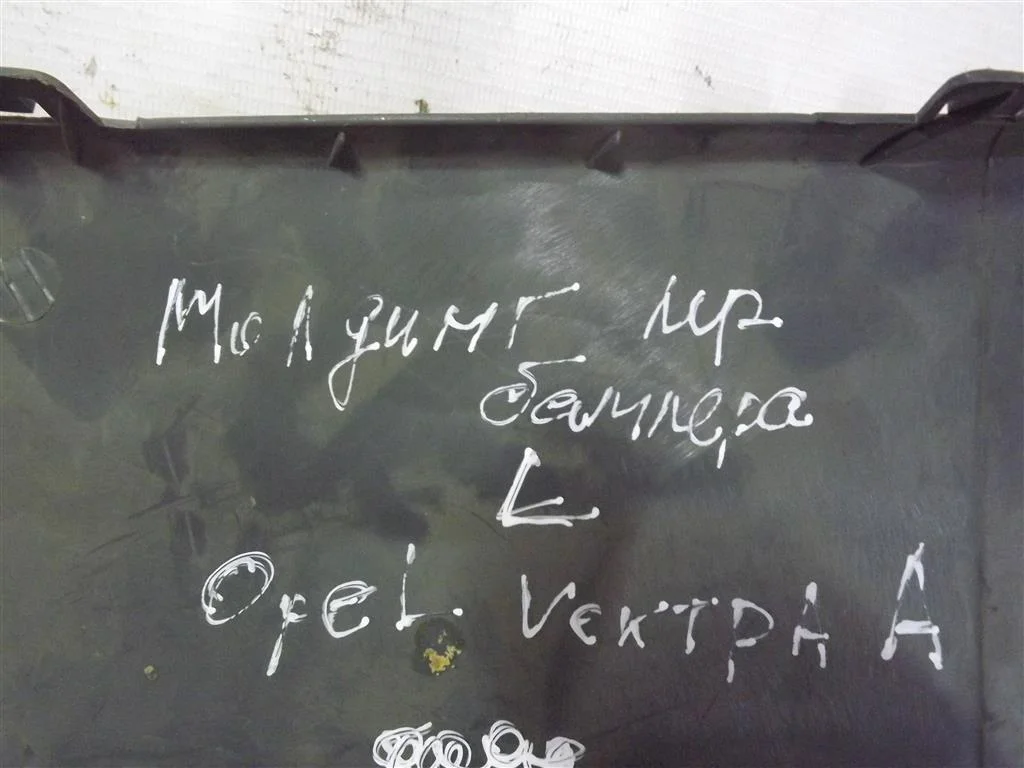 Молдинг пр
бампера
L
OpeL Vектра А